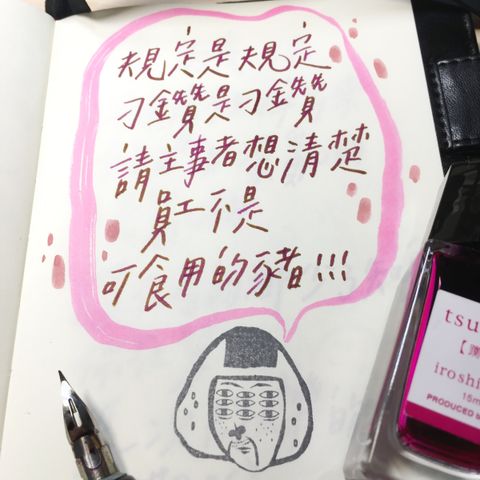 規定是規定
刁鑽是刁鑽
請主事者想清楚
員工不是
可食用的豬!!!
tsu
【
iroshi
15m
PRODUCED